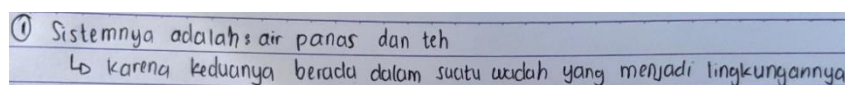 ① Sistemnya adalah : air panas dan teh
↳ Karena keduanya berada dalam suatu wadah yang menjadi lingkungannya